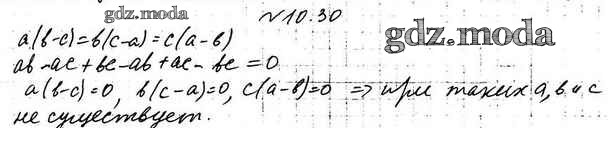 №10.30
gdz.moda
a(b-c)=b(c-a)=c(a-b)
gdz.moda
ab-ac+bc-ab+ac-bc=0
a(b-c)=0, b(c-a)=0, c(a-b)=0 => таких a, b и c
не существует.